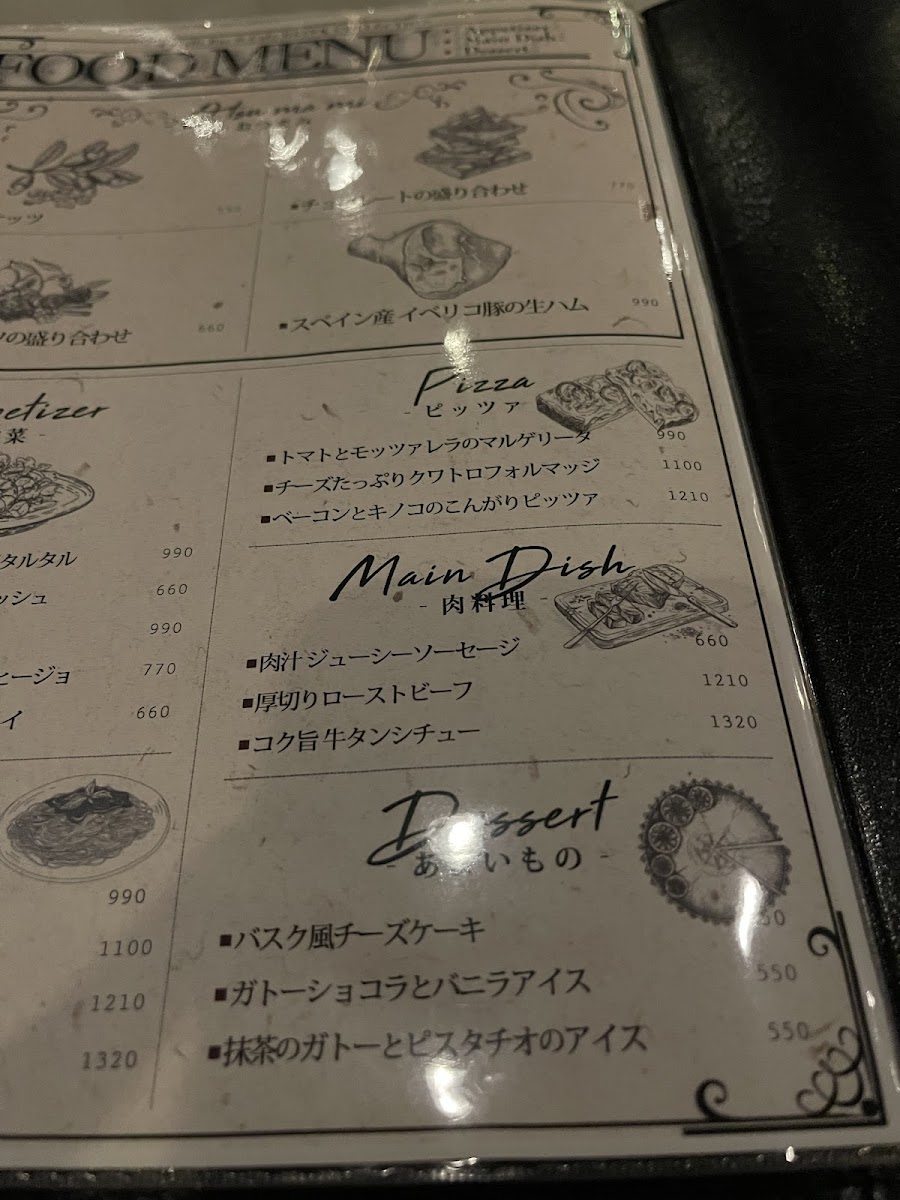 FOOD MENU
Appetizer
Main Dish
Dessert
ナッツ
■チョコレートの盛り合わせ 770
の盛り合わせ 660
■スペイン産 イベリコ豚の生ハム 990
etizer
菜 -
タルタル 990
ッシュ 660
990
ヒージョ 770
イ 660
990
1100
1210
1320
Pizza
- ピッツァ -
■トマトとモッツァレラのマルゲリータ 990
■チーズたっぷりクワトロフォルマッジ 1100
■ベーコンとキノコのこんがりピッツァ 1210
Main Dish
- 肉料理 -
■肉汁ジューシーソーセージ 660
■厚切りローストビーフ 1210
■コク旨牛タンシチュー 1320
Dessert
- あまいもの -
■バスク風チーズケーキ 50
■ガトーショコラとバニラアイス 550
■抹茶のガトーとピスタチオのアイス 550